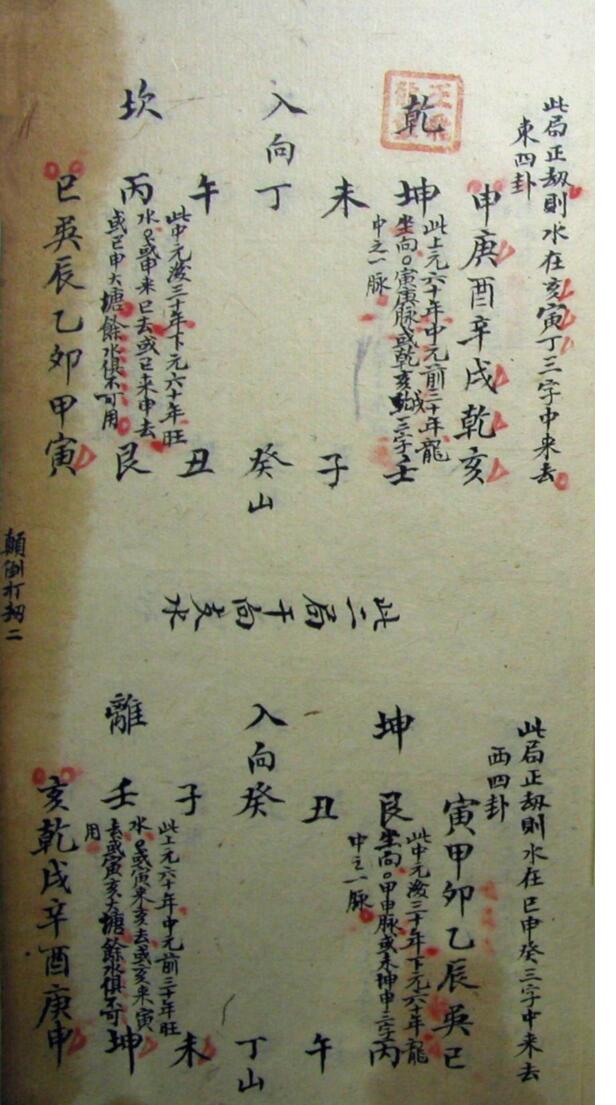 此局正劫則水在亥寅丁三字中来去
東四卦
乾
入向
坎
申庚酉辛戌乾亥
坤
未
丁
午
丙
巳巽辰乙卯甲寅
此上元六十年中元前三十年龍
坐向○寅庚脉或乾亥
三字
中之一脉
此中元後三十年下元六十年旺
水○或申来巳去或巳来申去
或巳申大塘餘水俱不可用
壬
子
癸山
丑
艮
此二局干向支水
顛倒打劫二
此局正劫則水在巳申癸三字中来去
西四卦
坤
入向
離
寅甲卯乙辰巽巳
艮
丑
癸
子
壬
亥乾戌辛酉庚申
此中元後三十年下元六十年龍
坐向○甲申脉或未坤申三字
中之一脉
此上元六十年中元前三十年旺
水○或寅来亥去或亥来寅
去或寅亥大塘餘水俱不可
用
丙
午
丁山
未
坤